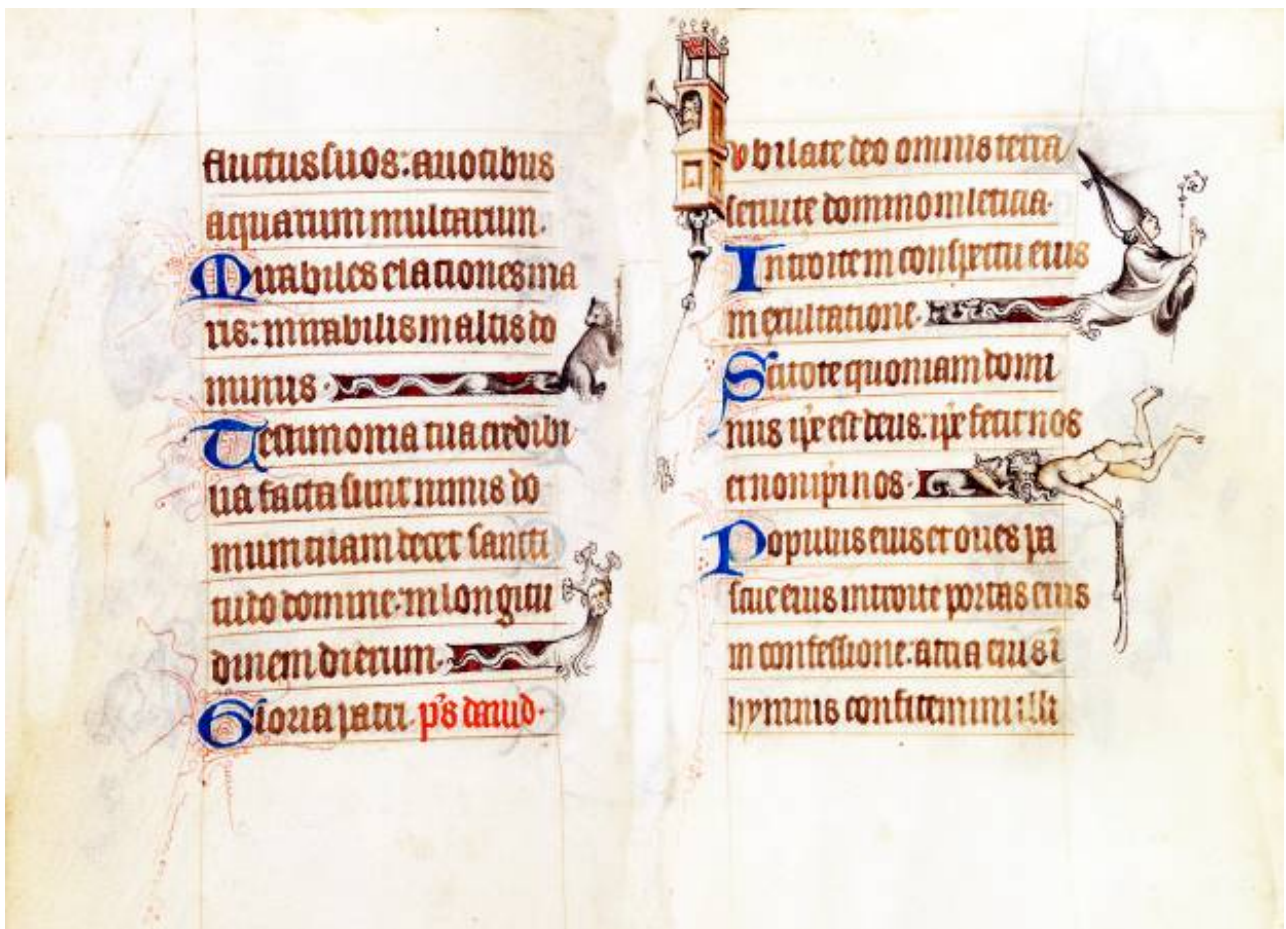 fluctus suos: a vocibus
aquarum multarum.
Mirabiles elationes ma
ris: mirabilis in altis do
minus.
Testimonia tua credibi
lia facta sunt nimis do
mum tuam decet sancti
tudo domine. in longitu
dinem dierum.
Gloria patri. ps david.
ubilate deo omnis terra
servite domino in leticia.
Introite in conspectu eius
in exultatione.
Scitote quoniam domi
nus ipe est deus: ipe fecit nos
et non ipi nos.
Populus eius et oves pa
scue eius introite portas eius
in confessione. atria eius i
hymnis confitemini illi